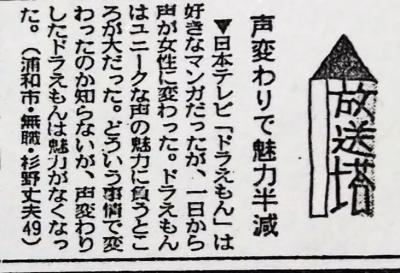 放送塔
声変わりで魅力半減
▼日本テレビ「ドラえもん」は
好きなマンガだったが、一日から
声が女性に変わった。ドラえもん
はユニークな声の魅力に負うとこ
ろが大だった。どういう事情で変
わったのか知らないが、声変わり
したドラえもんは魅力がなくなっ
た。（浦和市・無職・杉野丈夫49）